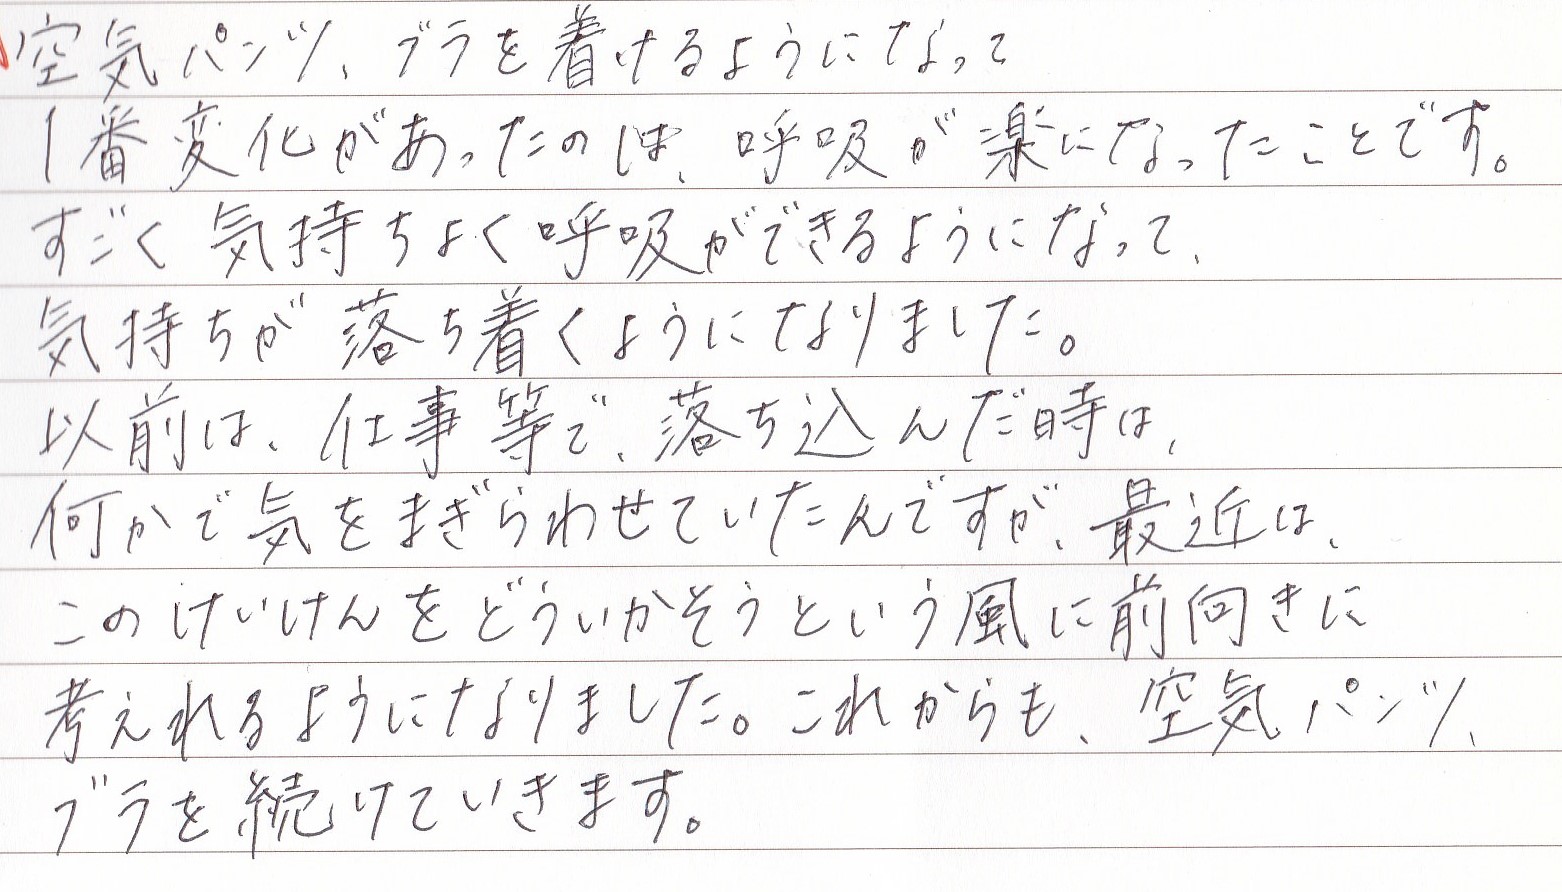 空気パンツ、ブラを着けるようになって
1番変化があったのは、呼吸が楽になったことです。
すごく気持ちよく呼吸ができるようになって、
気持ちが落ち着くようになりました。
以前は、仕事等で、落ち込んだ時は、
何かで気をまぎらわせていたんですが、最近は、
このけいけんをどういかそうという風に前向きに
考えれるようになりました。これからも、空気パンツ、
ブラを続けていきます。